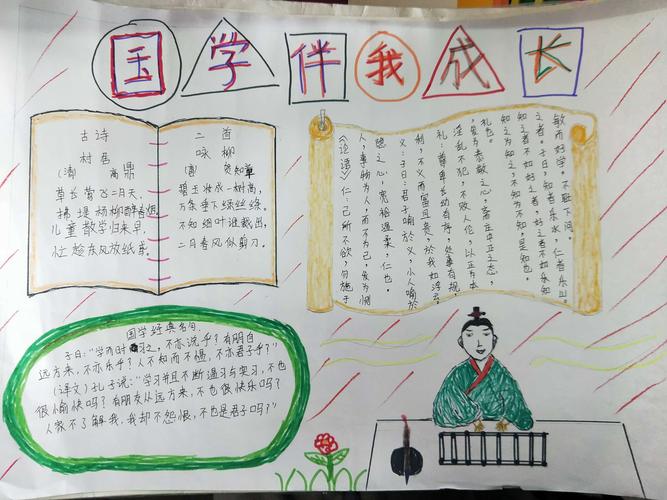 国学伴我成长
古诗
村居
(清) 高鼎
草长莺飞二月天，
拂堤杨柳醉春烟。
儿童散学归来早，
忙趁东风放纸鸢。
二首
咏柳
(唐) 贺知章
碧玉妆成一树高，
万条垂下绿丝绦。
不知细叶谁裁出，
二月春风似剪刀。
《论语》仁：己所不欲，勿施于
人，事物为人，而不为己，发为恻
隐之心，宽裕温柔，仁也。
义：子曰：君子喻於义，小人喻於
利，不义而富且贵，於我如浮云
礼：尊卑长幼有序，处事有规，
淫乱不犯，不败人伦，以正为本，
发为恭敬之心，斋庄中正之态，
礼也。
知之为知之，不知为不知，是知也。
之者不如好之者，好之者不如乐知
之者。子曰，知者乐水，仁者乐山。
敏而好学。不耻下问。
国学经典名句.
子曰："学而时习之，不亦说乎？有朋自
远方来，不亦乐乎？人不知而不愠，不亦君子乎？"
(译文)孔子说："学习并且不断温习与实习，不也
很愉快吗？有朋友从远方来，不也很快乐吗？
人家不了解我，我却不怨恨，不也是君子吗？"